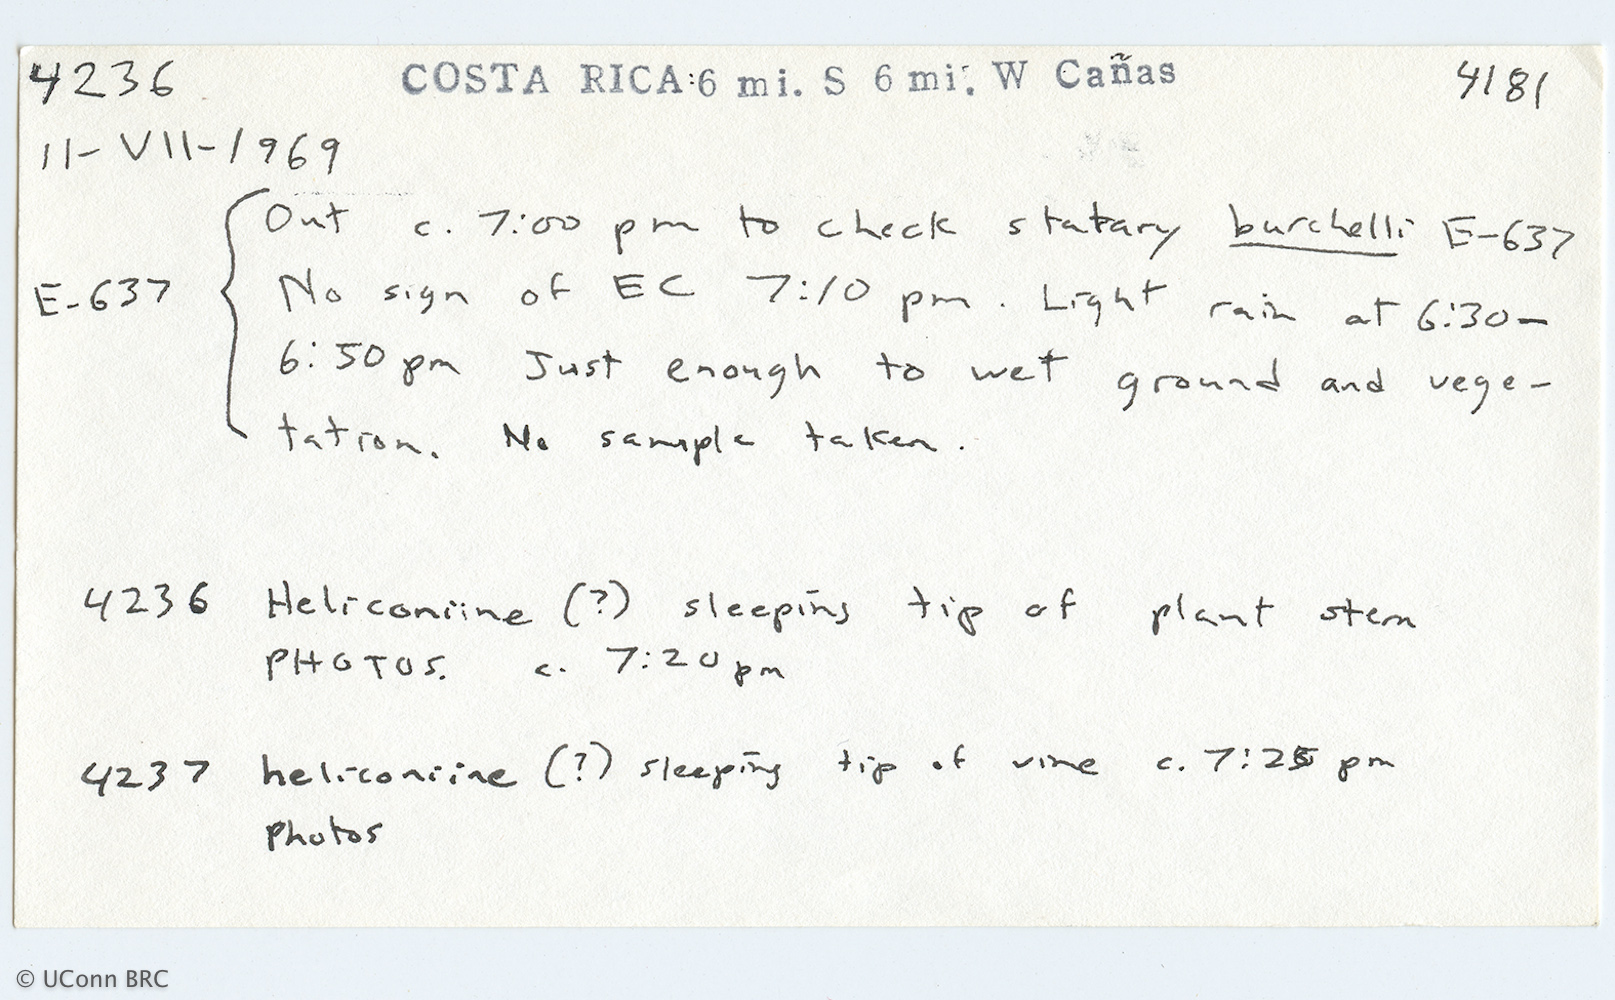 4236 COSTA RICA: 6 mi. S 6 mi. W Cañas 4181
11-VII-1969
Out c. 7:00 pm to check statary burchelli E-637
E-637 No sign of EC 7:10 pm. Light rain at 6:30-
6:50 pm Just enough to wet ground and vege-
tation. No sample taken.
4236 Heliconiine (?) sleeping tip of plant stem
PHOTOS. c. 7:20 pm
4237 heliconiine (?) sleeping tip of vine c. 7:25 pm
photos
© UConn BRC